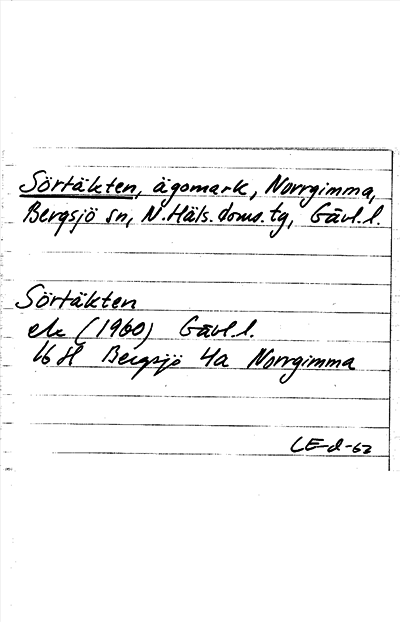 Sörtäkten, ägomark, Norrgimma,
Bergsjö sn, N. Häls. doms. tg, Gävl. l.
Sörtäkten
ek (1960) Gävl. l.
16 H Bergsjö 4a Norrgimma
LE-d-62